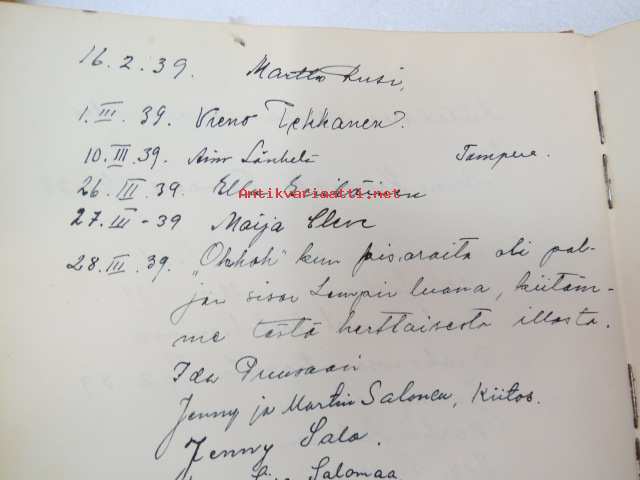 16.2.39. Martta Rusi,
1.III.39. Vieno Tekkanen.
10.III.39. Aino Tampere.
26.III.39. Ella
Antikvariaatti.net
27.III-39 Maija
28.III.39. "Ohhoh" kun pisaraita oli pal-
jon sisar Lempin luona, kiitäm-
me tästä herttaisesta illasta.
Ida
Jenny ja Martin Salonen, Kiitos.
Jenny Salo.
Salomaa